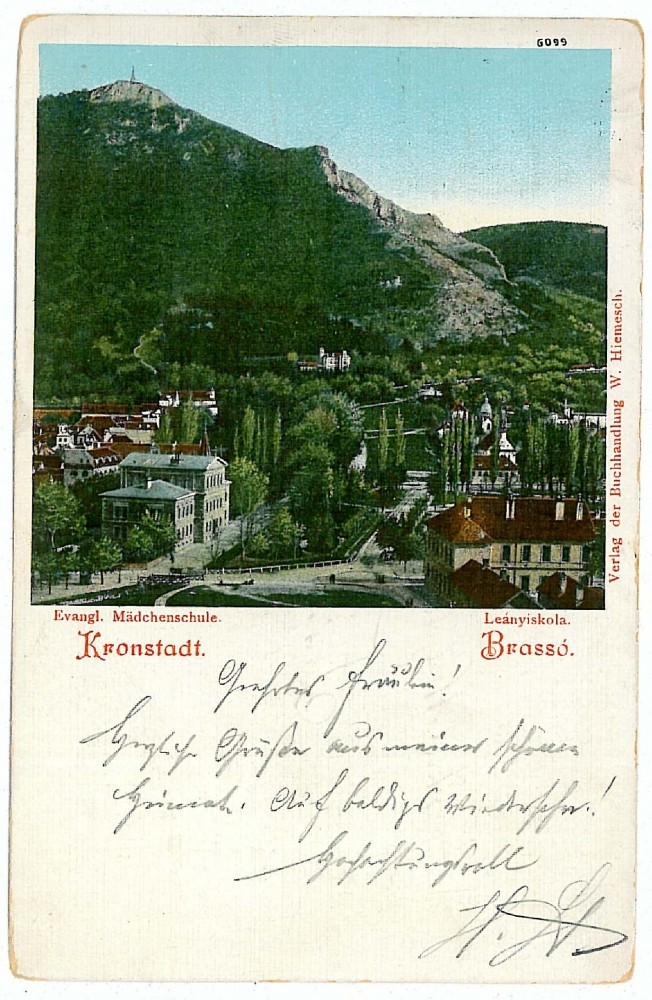 6099
Evangl. Mädchenschule.
Leányiskola.
Kronstadt.
Brassó.
Verlag der Buchhandlung W. Hiemesch.
Geehrtes Fräulein!
Herzliche Grüße aus meiner schönen
Heimat. Auf baldiges Wiedersehn!
Hochachtungsvoll